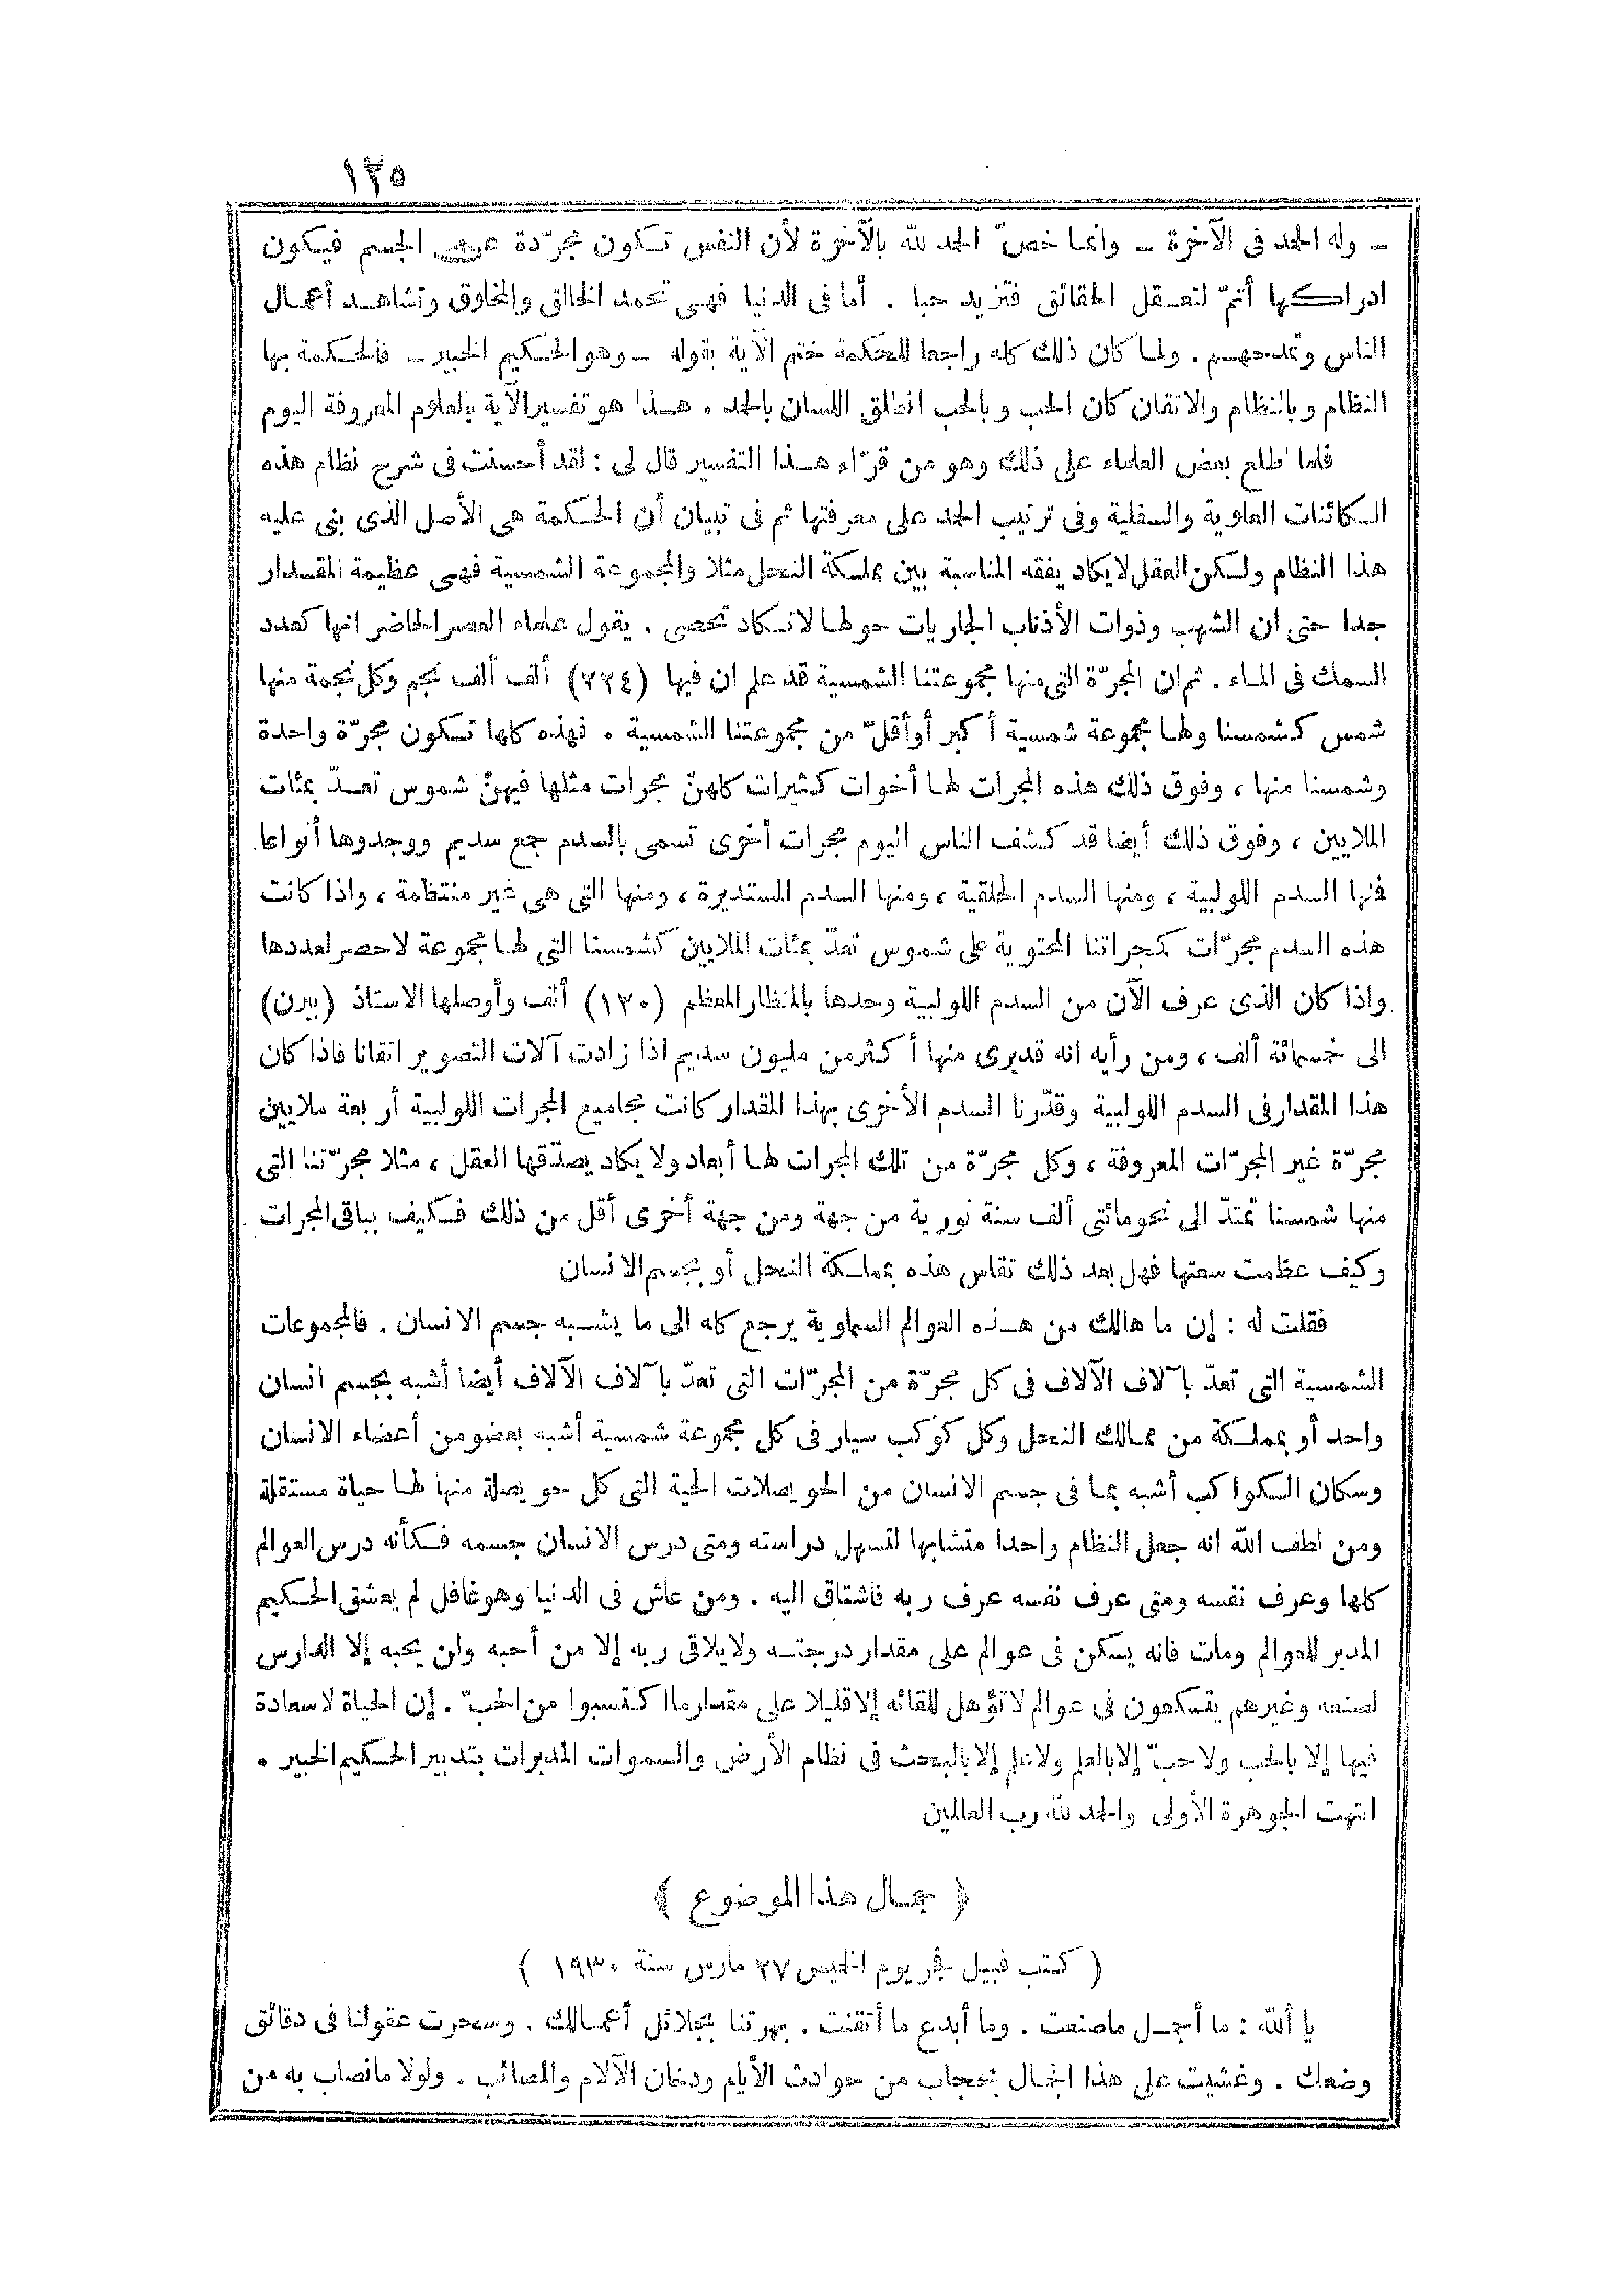 ١٢٥
ـ وله الحمد فى الآخرة ـ وانما خصّ الحمد لله بالآخرة لأن النفس تكون مجرّدة عن الجسم فيكون
ادراكها أتمّ لتعقل الحقائق فتزيد حبا . أما فى الدنيا فهى تحمد الخالق والمخلوق وتشاهد أعمال
الناس وتمدحهم . ولما كان ذلك كله راجعا للحكمة ختم الآية بقوله ـ وهو الحكيم الخبير ـ فالحكمة بها
النظام وبالنظام والاتقان كان الحب وبالحب انطلق اللسان بالحمد . هذا هو تفسير الآية بالعلوم المعروفة اليوم
فلما اطلع بعض العلماء على ذلك وهو من قرّاء هذا التفسير قال لى : لقد أحسنت فى شرح نظام هذه
الكائنات العلوية والسفلية وفى ترتيب الحمد على معرفتها ثم فى تبيان أن الحكمة هى الأصل الذى بنى عليه
هذا النظام ولكن العقل لا يكاد يفقه المناسبة بين مملكة النحل مثلا والمجموعة الشمسية فهى عظيمة المقدار
جدا حتى ان الشهب وذوات الأذناب الجاريات حولها لا تكاد تحصى . يقول علماء العصر الحاضر انها كعدد
السمك فى الماء . ثم ان المجرّة التى منها مجموعتنا الشمسية قد علم ان فيها (٢٢٤) ألف ألف نجم وكل نجمة منها
شمس كشمسنا ولها مجموعة شمسية أكبر أو أقلّ من مجموعتنا الشمسية . فهذه كلها تكون مجرّة واحدة
وشمسنا منها ، وفوق ذلك هذه المجرات لها أخوات كثيرات كلهنّ مجرات مثلها فيهنّ شموس تعدّ بمئات
الملايين ، وفوق ذلك أيضا قد كشف الناس اليوم مجرات أخرى تسمى بالسدم جمع سديم ووجدوها أنواعا
فمنها السدم اللولبية ، ومنها السدم الحلقية ، ومنها السدم المستديرة ، ومنها التى هى غير منتظمة ، واذا كانت
هذه السدم مجرّات كمجراتنا المحتوية على شموس تعدّ بمئات الملايين كشمسنا التى لها مجموعة لا حصر لعددها
واذا كان الذى عرف الآن من السدم اللولبية وحدها بالمنظار المعظم (١٢٠) ألف وأوصلها الاستاذ (بيرن)
الى خمسمائة ألف ، ومن رأيه انه قد يرى منها أكثر من مليون سديم اذا زادت آلات التصوير اتقانا فاذا كان
هذا المقدار فى السدم اللولبية وقدّرنا السدم الأخرى بهذا المقدار كانت مجاميع المجرات اللولبية أربعة ملايين
مجرّة غير المجرّات المعروفة ، وكل مجرّة من تلك المجرات لها أبعاد ولا يكاد يصدّقها العقل ، مثلا مجرّتنا التى
منها شمسنا تمتدّ الى نحو مائتى ألف سنة نورية من جهة ومن جهة أخرى أقل من ذلك فكيف بباقى المجرات
وكيف عظمت سعتها فهل بعد ذلك تقاس هذه بمملكة النحل أو بجسم الانسان
فقلت له : إن ما هالك من هذه العوالم السماوية يرجع كله الى ما يشبه جسم الانسان . فالمجموعات
الشمسية التى تعدّ بآلاف الآلاف فى كل مجرّة من المجرّات التى تعدّ بآلاف الآلاف أيضا أشبه بجسم انسان
واحد أو بمملكة من ممالك النحل وكل كوكب سيار فى كل مجموعة شمسية أشبه بعضو من أعضاء الانسان
وسكان الكواكب أشبه بما فى جسم الانسان من الحويصلات الحية التى كل حويصلة منها لها حياة مستقلة
ومن لطف الله انه جعل النظام واحدا متشابها لتسهل دراسته ومتى درس الانسان جسمه فكأنه درس العوالم
كلها وعرف نفسه ومتى عرف نفسه عرف ربه فاشتاق اليه . ومن عاش فى الدنيا وهو غافل لم يعشق الحكيم
المدبر للعوالم ومات فانه يسكن فى عوالم على مقدار درجته ولا يلاقى ربه إلا من أحبه ولن يحبه إلا الدارس
لصنعه وغيرهم يتسكعون فى عوالم لا تؤهل للقائه إلا قليلا على مقدار ما اكتسبوا من الحبّ . إن الحياة لا سعادة
فيها إلا بالحب ولا حبّ إلا بالعلم ولا علم إلا بالبحث فى نظام الأرض والسموات المدبرات بتدبير الحكيم الخبير .
انتهت الجوهرة الأولى والحمد لله رب العالمين
﴿ جمال هذا الموضوع ﴾
( كتب قبيل فجر يوم الخميس ٢٧ مارس سنة ١٩٣٠ )
يا ألله : ما أجمل ما صنعت . وما أبدع ما أتقنت . بهرتنا بجلائل أعمالك . وسحرت عقولنا فى دقائق
وضعك . وغشيت على هذا الجمال بحجاب من حوادث الأيام ودخان الآلام والمصائب . ولولا ما نصاب به من